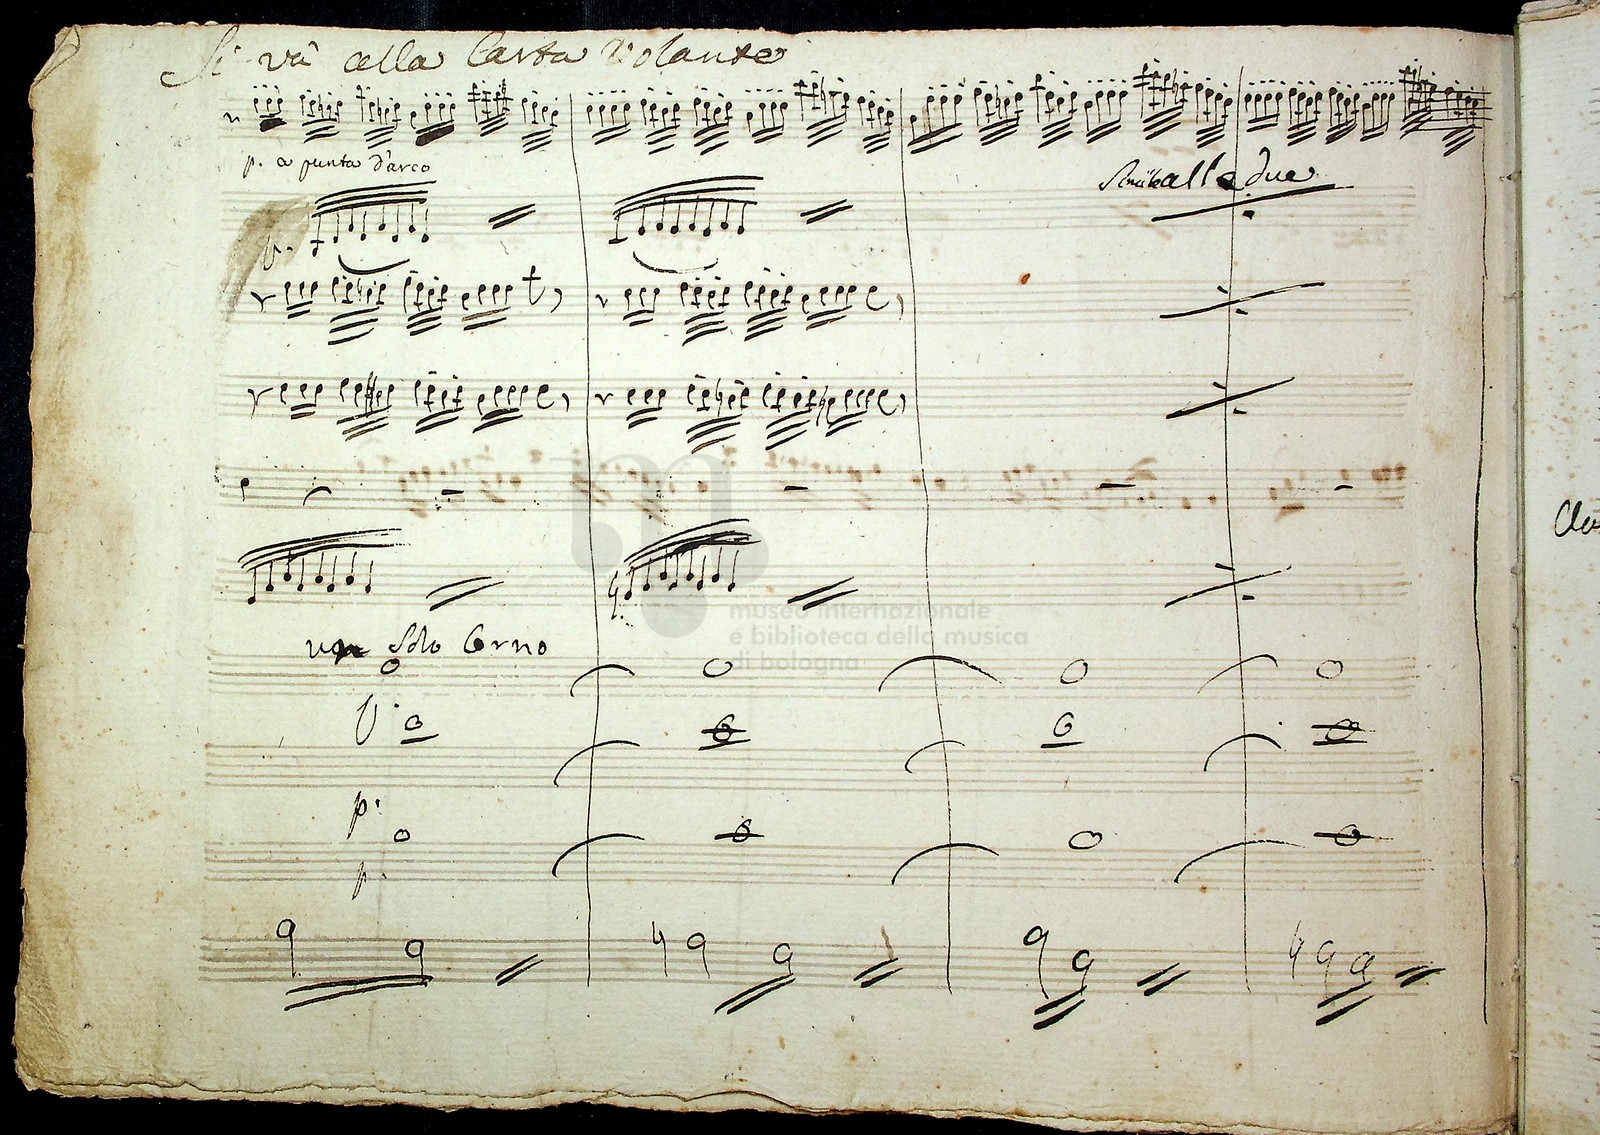 Si và alla Carta Volante
p. a punta d'arco
Simile alle due
p.
un Solo Corno
p.
p.
p.
museo internazionale
e biblioteca della musica
di bologna